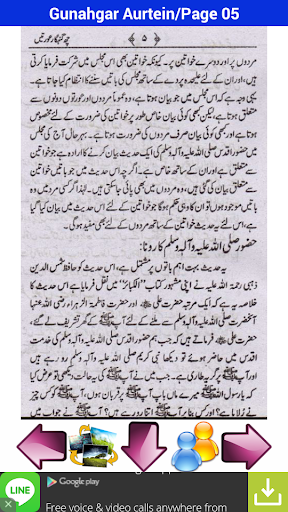 Gunahgar Aurtein/Page 05
چھ گنہگار عورتیں
﴿ ۵ ﴾
مردوں پر اور دوسرے روز پر۔ کیونکہ خواتین بھی اس مجلس میں شرکت فرمایا کرتی
ہیں، اور ان کے لئے علیحدہ پردے کے ساتھ مجلس کی باتیں سننے کا انتظام کیا جاتا ہے۔
یہی وجہ ہے کہ اس مجلس میں جو بیان ہوتا ہے، وہ عموماً مردوں اور عورتوں دونوں سے
متعلق ہوتا ہے، اور بھی کوئی بیان خاص طور پر خواتین کی ضرورت کے لئے مخصوص
ہوتا ہے، اور بھی کوئی بیان صرف مردوں کی ضرورت کا ہوتا ہے۔ بہرحال آج کی مجلس
میں حضور اقدس صلی اللہ علیہ وآلہ وسلم کی ایک حدیث بیان کرنے کا ارادہ ہے جو خواتین
سے متعلق ہے
متعلق بیان کی گئی ہیں، وہ مردوں میں بھی پائی جاتی ہیں۔ لہٰذا اگر کسی مردوں میں وہ
باتیں موجود ہوں تو ان کا وہی حکم ہوگا جو خواتین کے لئے اس حدیث میں بیان کیا گیا
ہے، اس لئے یہ حدیث خواتین کے ساتھ مردوں کے لئے بھی مفید ہوگی۔
حضور صلی اللہ علیہ وآلہ وسلم کا رونا:
یہ حدیث بہت اہم باتوں پر مشتمل ہے، اس حدیث کو حافظ شمس الدین
ذہبی رحمۃ اللہ علیہ نے اپنی مشہور کتاب "الکبائر" میں نقل فرمایا ہے اس حدیث کا
خلاصہ یہ ہے کہ ایک مرتبہ حضرت علی اور حضرت فاطمۃ الزہرا رضی اللہ عنہا
آنحضرت صلی اللہ علیہ وآلہ وسلم سے ملنے کے لئے آپ ﷺ کے گھر تشریف لے
اقدس میں حاضر ہوئے تو دیکھا نبی کریم صلی اللہ علیہ وآلہ وسلم رو رہے ہیں
اور آپ ﷺ پر گریہ طاری ہے۔ جب میں نے آپ ﷺ کی یہ حالت دیکھی تو عرض کیا
کہ یا رسول اللہ ﷺ میرے ماں باپ آپ ﷺ پر قربان ہوں، آپ ﷺ کو کس چیز
نے رلایا ہے؟ اور کس بناء پر آپ ﷺ اتنا رو رہے ہیں؟ آپ ﷺ نے جواب میں
LINE
Google play
Free voice & video calls anywhere from